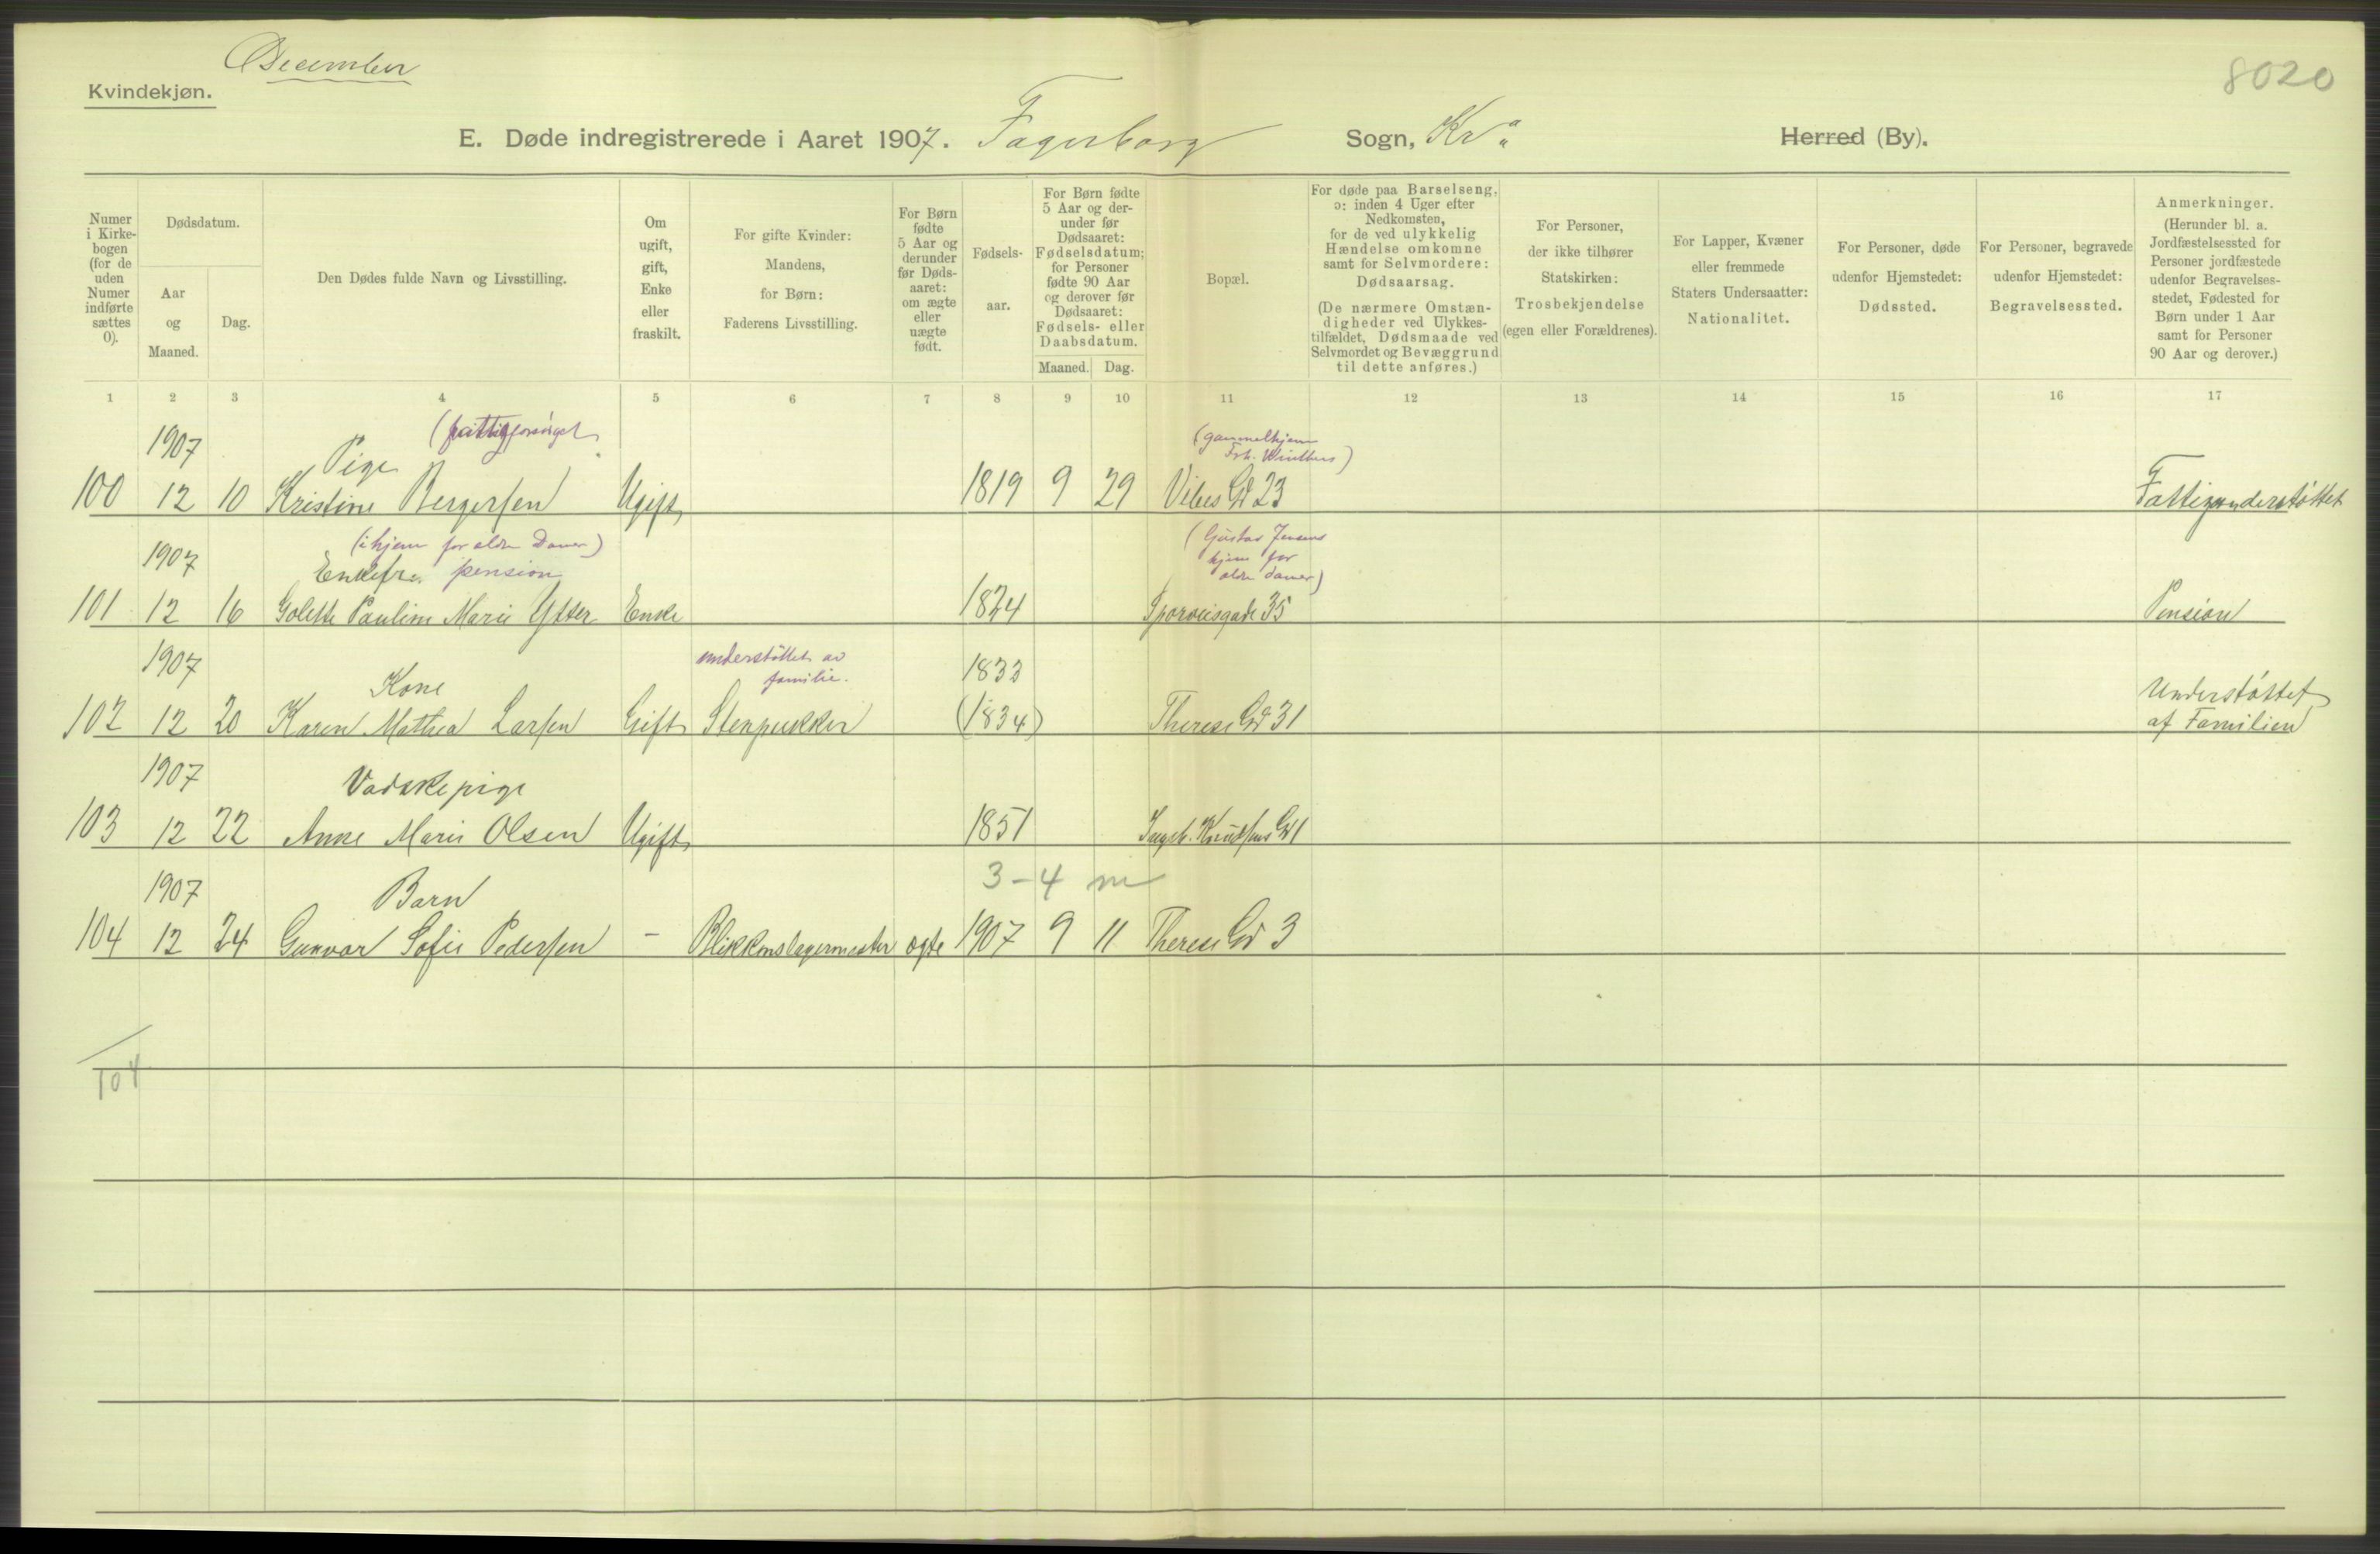 December
Kvindekjøn.
8020
E. Døde indregistrerede i Aaret 1907. Fagerborg Sogn, Kr.a Herred (By).
Numer i Kirkebogen (for de uden Numer indførte sættes 0).
Dødsdatum.
Aar og Maaned.
Dag.
Den Dødes fulde Navn og Livsstilling.
Om ugift, gift, Enke eller fraskilt.
For gifte Kvinder: Mandens, for Børn: Faderens Livsstilling.
For Børn fødte 5 Aar og derunder før Dødsaaret: om ægte eller uægte født.
Fødselsaar.
For Børn fødte 5 Aar og derunder før Dødsaaret: Fødselsdatum; for Personer fødte 90 Aar og derover før Dødsaaret: Fødsels- eller Daabsdatum.
Maaned. Dag.
Bopæl.
For døde paa Barselseng, ɔ: inden 4 Uger efter Nedkomsten, for de ved ulykkelig Hændelse omkomne samt for Selvmordere: Dødsaarsag.
(De nærmere Omstændigheder ved Ulykkestilfældet, Dødsmaade ved Selvmordet og Bevæggrund til dette anføres.)
For Personer, der ikke tilhører Statskirken: Trosbekjendelse (egen eller Forældrenes).
For Lapper, Kvæner eller fremmede Staters Undersaatter: Nationalitet.
For Personer, døde udenfor Hjemstedet: Dødssted.
For Personer, begravede udenfor Hjemstedet: Begravelsessted.
Anmerkninger.
(Herunder bl. a. Jordfæstelsessted for Personer jordfæstede udenfor Begravelsesstedet, Fødested for Børn under 1 Aar samt for Personer 90 Aar og derover.)
1 2 3 4 5 6 7 8 9 10 11 12 13 14 15 16 17
(fattigforsørget
1907 Pige (gammelhjem Frk. Winthers)
100 12 10 Kristine Bergersen Ugift 1819 9 29 Vibes Gd 23 Fattigunderstøttet
(i hjem for eldre Damer) (Gustav Jensens hjem for eldre damer)
1907 Enkefru pension
101 12 16 Golette Pauline Marie Ytter Enke 1824 Sporveisgade 35 Pension
1907 Kone understøttet av familie. 1833 Understøttet
102 12 20 Karen Mathea Larsen Gift Stenpukker (1834) Therese Gd 31 af Familien
1907 Vaskepige
103 12 22 Anne Marie Olsen Ugift 1851 Ingeb. Knudsens Gd 1
1907 Barn 3-4 m
104 12 24 Gunvor Sofie Pedersen - Blikkenslagermester ægte 1907 9 11 Therese Gd 3
104